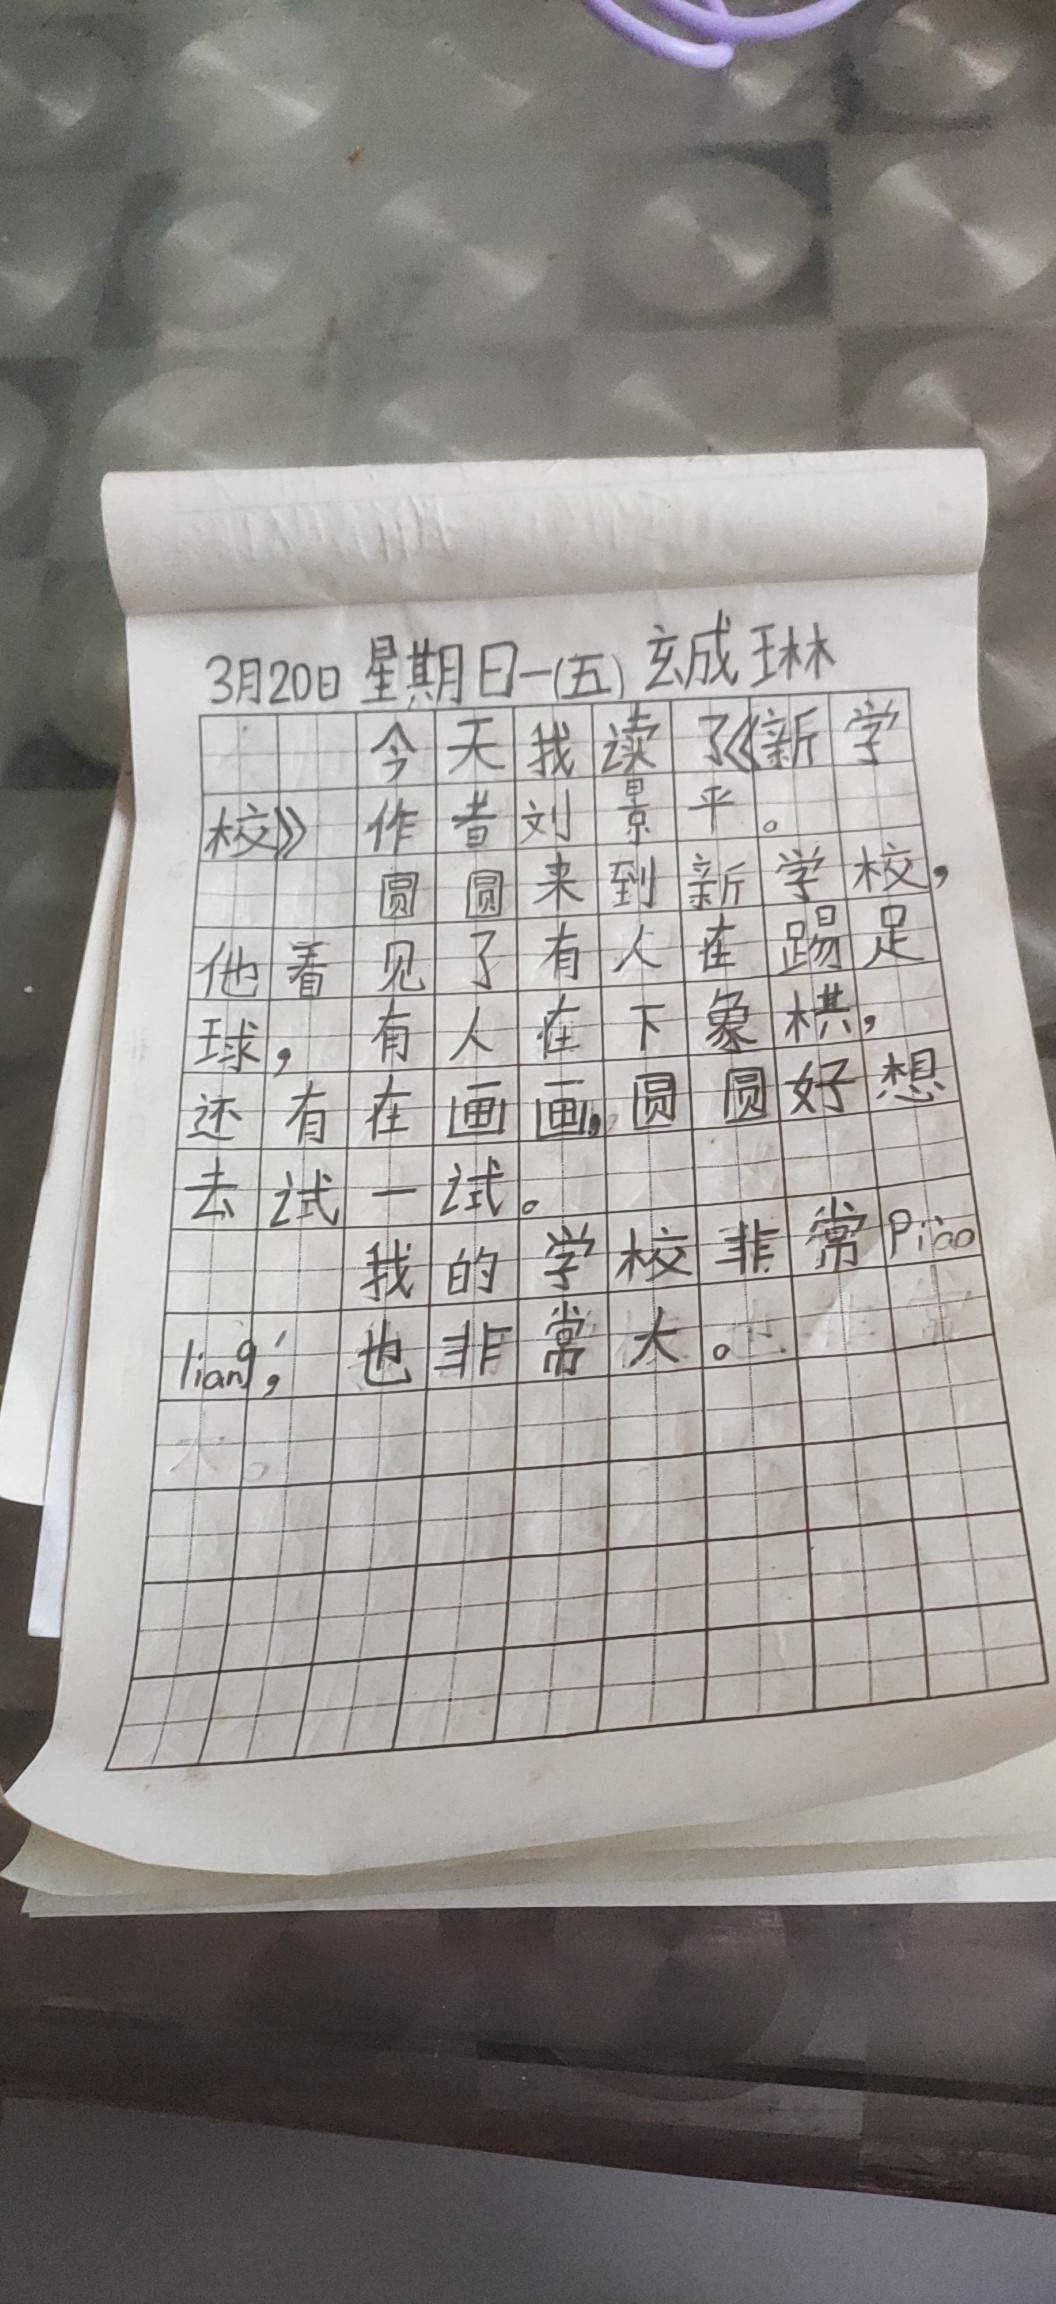 3月20日 星期日一(五) 玄成琳
今天我读了《新学
校》作者刘景平。
圆圆来到新学校,
他看见了有人在踢足
球,有人在下象棋,
还有在画画,圆圆好想
去试一试。
我的学校非常Piào
liang,也非常大。